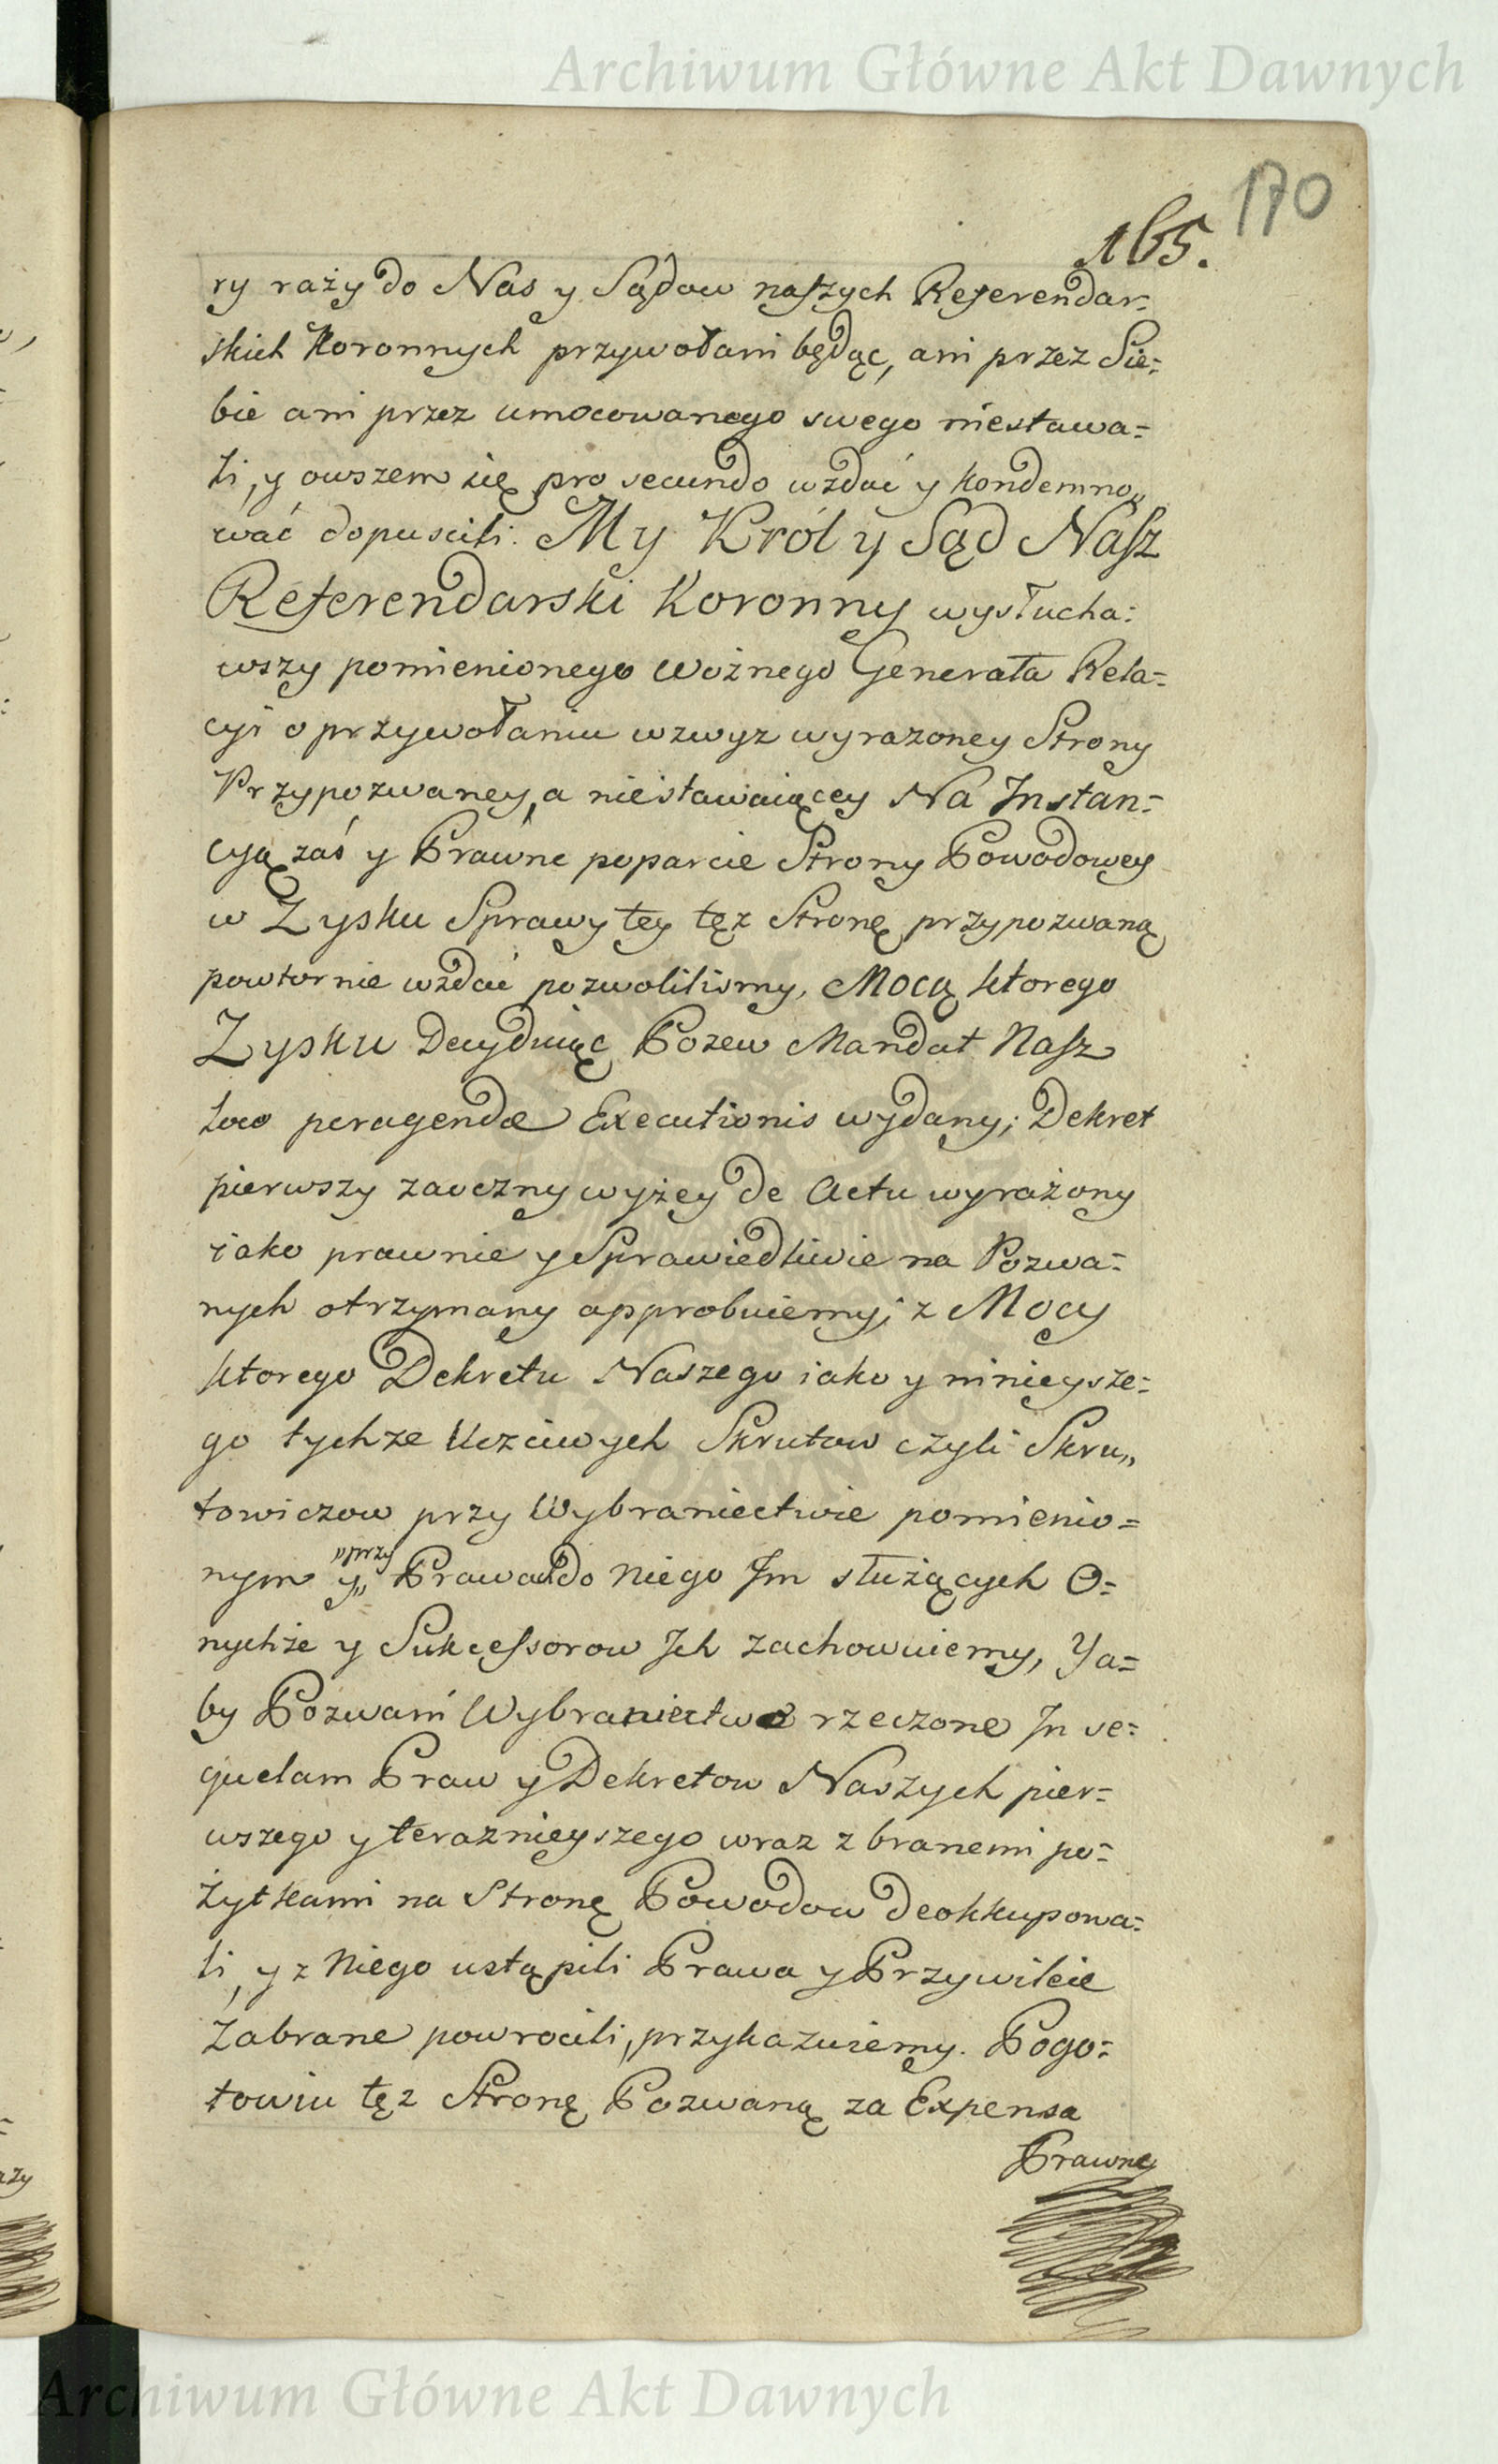 Archiwum Główne Akt Dawnych
170
165.
ry razy do Nas y Sądow naszych Referendar:
skich Koronnych przywołani będąc, ani przez Sie:
bie ani przez umocowanego swego niestawa=
li, y owszem się pro secundo wzdać y kondemno„
wać dopuscili. My Król y Sąd Nasz
Referendarski Koronny wysłucha:
wszy pomienionego Woźnego Generała Rela=
cyi o przywołaniu wzwyz wyrazoney Strony
Przypozwaney, a niestawaiącey Na Instan=
cyą zaś y Prawne poparcie Strony Powodowey
w Zysku Sprawy tey tęz Stronę przypozwaną
powtornie wzdać pozwolilismy, Mocą ktorego
Zysku Decyduiąc Pozew Mandat Nasz
loco peragendæ Executionis wydany; Dekret
pierwszy zaoczny wyżey de Actu wyrażony
iako prawnie y Sprawiedliwie na Pozwa=
nych otrzymany approbuiemy; z Mocy
ktorego Dekretu Naszego iako y ninieysze=
go tychze Uczciwych Skrutow czyli Skru„
towiczow przy Wybraniectwie pomienio=
nym y„ „przy Prawach do Niego Im służących O=
nychże y Sukcessorow Ich zachowuiemy, Ya=
by Pozwani Wybraniectwo rzeczone In se=
quelam Praw y Dekretow Naszych pier=
wszego y teraznieyszego wraz z branemi po=
żytkami na Stronę Powodow deokkupowa=
li, y z Niego ustąpili Prawa y Przywileie
Zabrane powrocili, przykazuiemy. Pogo=
towiu tęz Stronę Pozwaną za Expensa
Prawne
Archiwum Główne Akt Dawnych